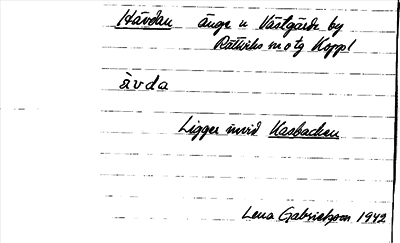 Hävdan änge u Västgärde by
Rättviks sn o tg Koppl
ävda
Ligger invid Kasbacken
Lena Gabrielsson 1942